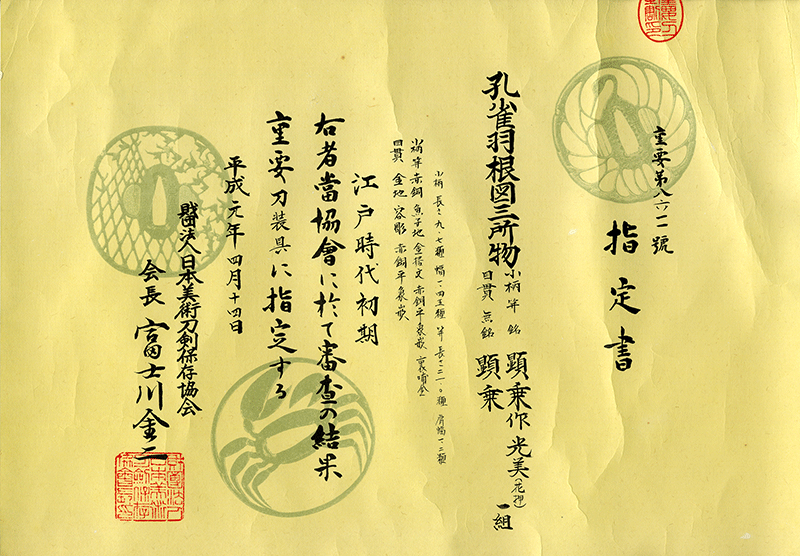 重要第八六一號
指定書
孔雀羽根図三所物 小柄 笄 銘 顕乗作 光美(花押)
目貫 無銘 顕乗 一組
小柄 長サ九・七糎 幅一・四五糎 笄 長サ二一・〇糎 肩幅一・二糎
小柄 笄 赤銅 魚子地 金据文 赤銅平象嵌 裏哺金
目貫 金地 容彫 赤銅平象嵌
江戸時代初期
右者當協會に於て審査の結果
重要刀装具に指定する
平成元年四月十四日
財団法人日本美術刀剣保存協会
会長 富士川金二